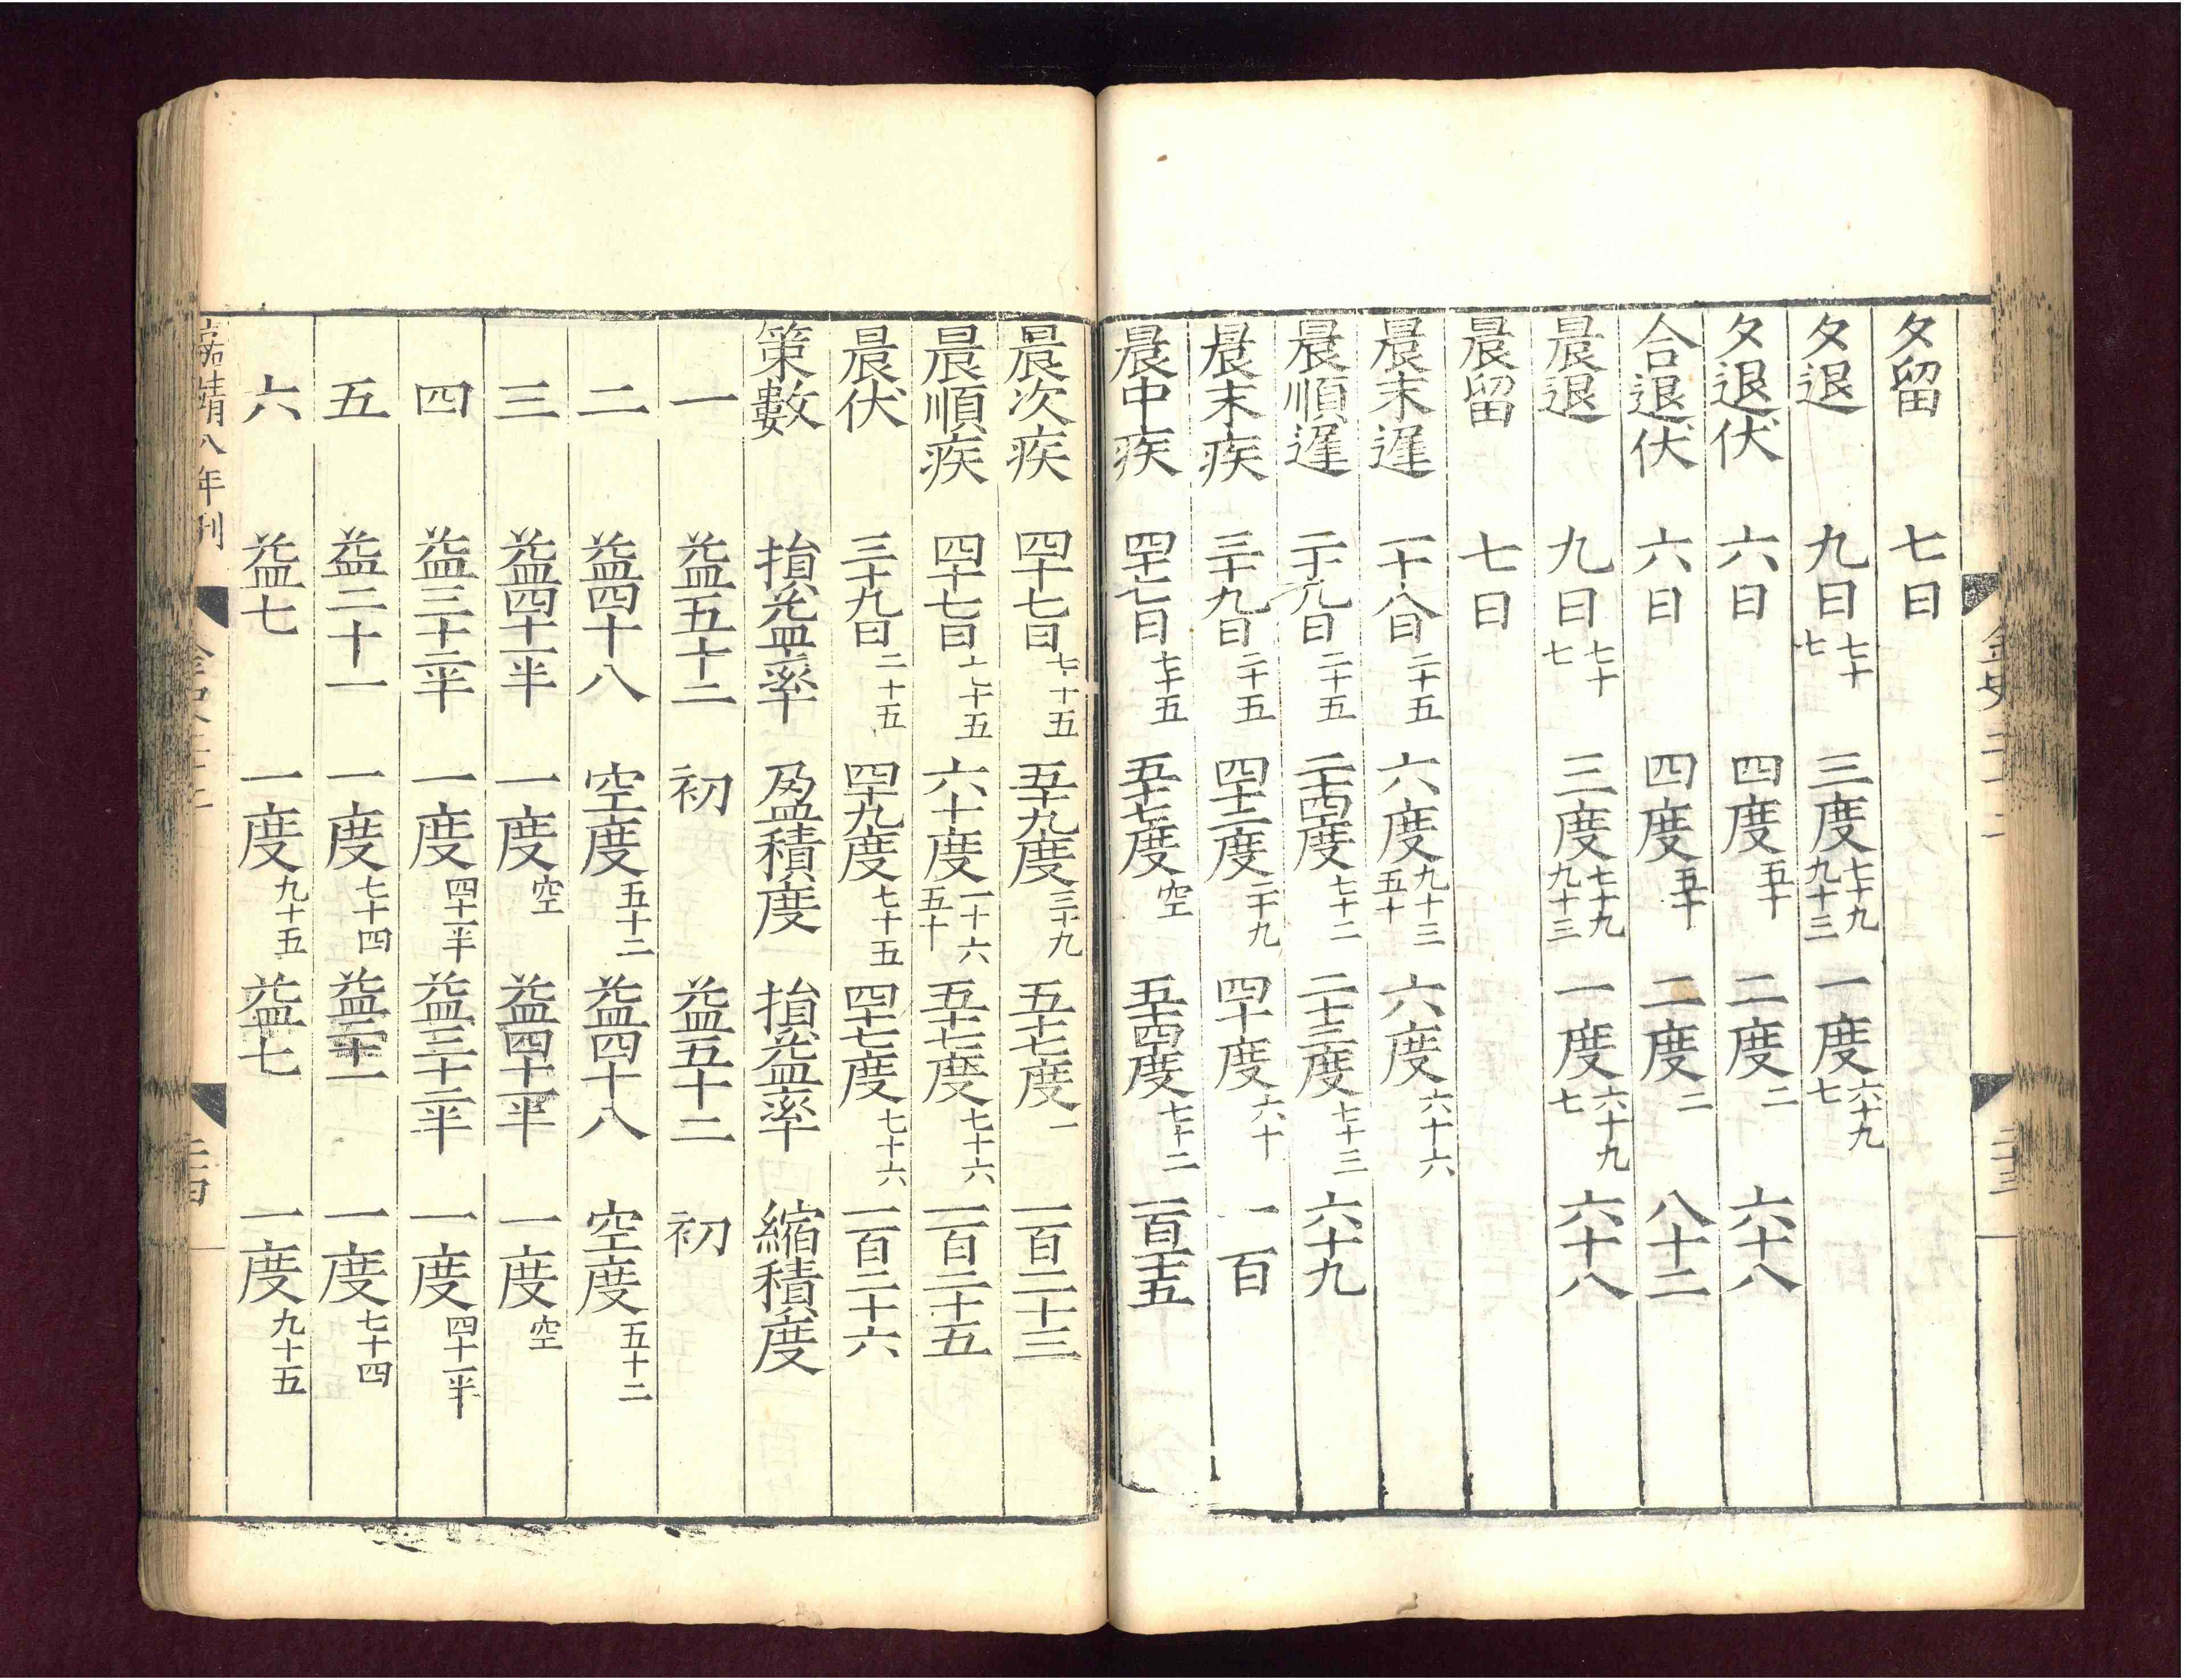 夕留 七日
夕退 九日七十七 三度七十九九十三 一度六十九七
夕退伏 六日 四度五十 二度二 六十八
合退伏 六日 四度五十 二度二 八十二
晨退 九日七十七 三度七十九九十三 一度六十九七 六十八
晨留 七日
晨末遲 一十八日二十五 六度九十三五十 六度六十六
晨順遲 二十九日二十五 二十四度七十二 二十三度七十三 六十九
晨末疾 三十九日二十五 四十二度二十九 四十度六十 一百
晨中疾 四十七日七十五 五十七度空 五十四度七十二 一百一十五
晨次疾 四十七日七十五 五十九度三十九 五十七度一 一百二十三
晨順疾 四十七日七十五 六十度一十六五十 五十七度七十六 一百二十五
晨伏 三十九日二十五 四十九度七十五 四十七度七十六 一百二十六
策數 損益率 盈積度 損益率 縮積度
一 益五十二 初 益五十二 初
二 益四十八 空度五十二 益四十八 空度五十二
三 益四十一半 一度空 益四十一半 一度空
四 益三十二半 一度四十一半 益三十二半 一度四十一半
五 益二十一 一度七十四 益二十一 一度七十四
六 益七 一度九十五 益七 一度九十五
嘉靖八年刊